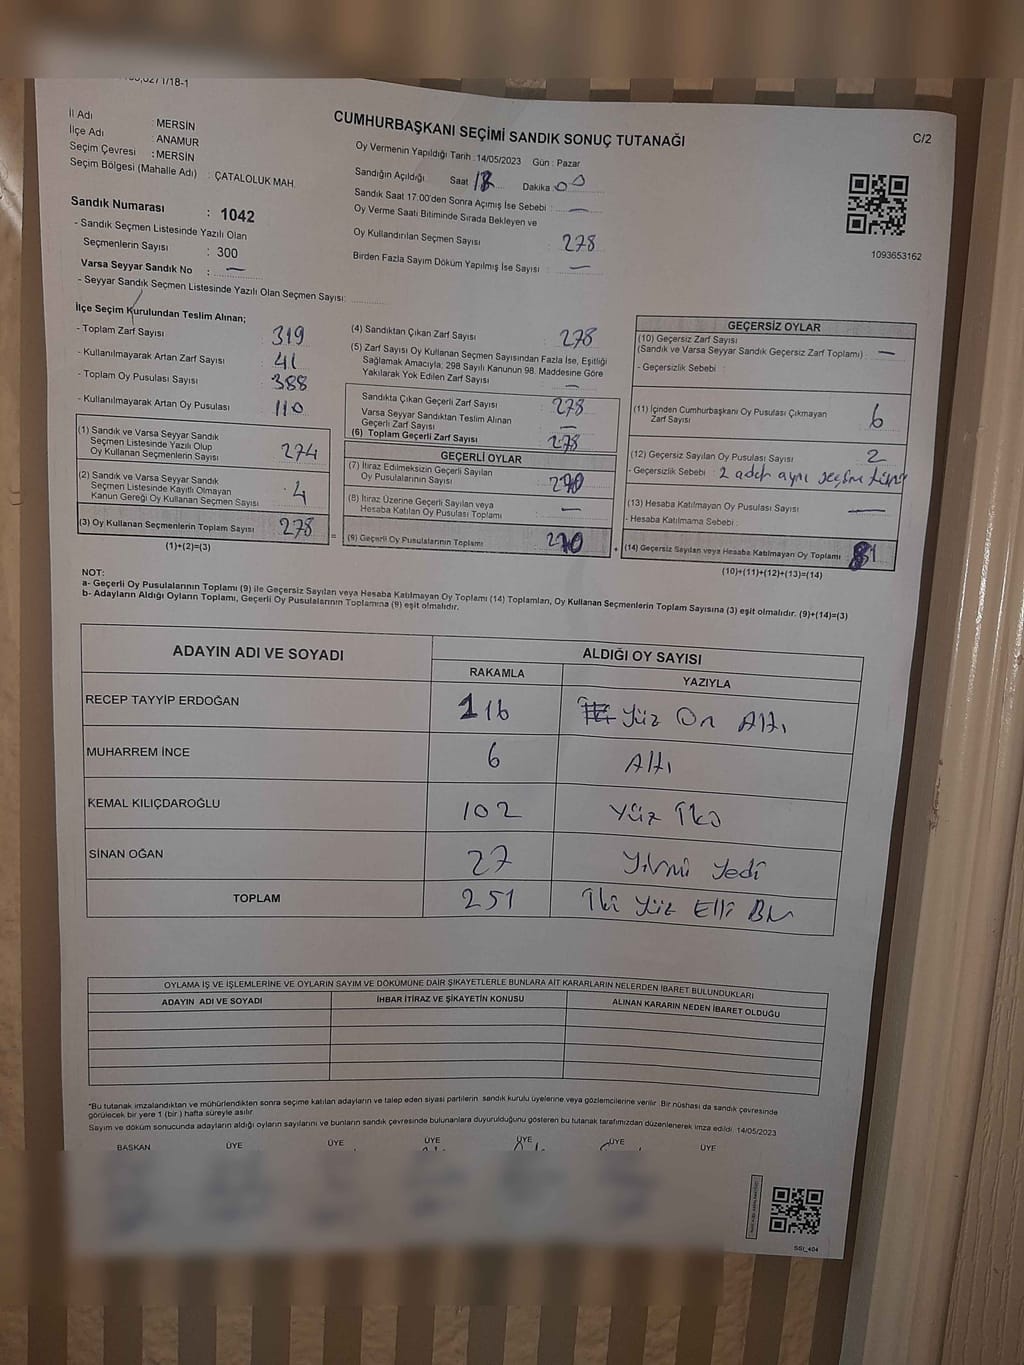 CUMHURBAŞKANI SEÇİMİ SANDIK SONUÇ TUTANAĞI
C/2
İl Adı : MERSİN
İlçe Adı : ANAMUR
Seçim Çevresi : MERSİN
Seçim Bölgesi (Mahalle Adı) : ÇATALOLUK MAH.
Sandık Numarası : 1042
- Sandık Seçmen Listesinde Yazılı Olan
Seçmenlerin Sayısı : 300
Varsa Seyyar Sandık No : —
- Seyyar Sandık Seçmen Listesinde Yazılı Olan Seçmen Sayısı:
Oy Vermenin Yapıldığı Tarih : 14/05/2023 Gün : Pazar
Sandığın Açıldığı Saat Dakika : 00
Sandık Saat 17:00'den Sonra Açımış İse Sebebi : —
Oy Verme Saati Bitiminde Sırada Bekleyen ve
Oy Kullandırılan Seçmen Sayısı : 278
Birden Fazla Sayım Döküm Yapılmış İse Sayısı : —
1093653162
İlçe Seçim Kurulundan Teslim Alınan;
- Toplam Zarf Sayısı : 319
- Kullanılmayarak Artan Zarf Sayısı : 41
- Toplam Oy Pusulası Sayısı : 388
- Kullanılmayarak Artan Oy Pusulası : 110
(1) Sandık ve Varsa Seyyar Sandık
Seçmen Listesinde Yazılı Olup
Oy Kullanan Seçmenlerin Sayısı : 274
(2) Sandık ve Varsa Seyyar Sandık
Seçmen Listesinde Kayıtlı Olmayan
Kanun Gereği Oy Kullanan Seçmen Sayısı : 4
(3) Oy Kullanan Seçmenlerin Toplam Sayısı : 278
(1)+(2)=(3)
(4) Sandıktan Çıkan Zarf Sayısı : 278
(5) Zarf Sayısı Oy Kullanan Seçmen Sayısından Fazla İse, Eşitliği
Sağlamak Amacıyla; 298 Sayılı Kanunun 98. Maddesine Göre
Yakılarak Yok Edilen Zarf Sayısı : —
Sandıkta Çıkan Geçerli Zarf Sayısı : 278
Varsa Seyyar Sandıktan Teslim Alınan
Geçerli Zarf Sayısı : —
(6) Toplam Geçerli Zarf Sayısı : 278
GEÇERLİ OYLAR
(7) İtiraz Edilmeksizin Geçerli Sayılan
Oy Pusulalarının Sayısı : 270
(8) İtiraz Üzerine Geçerli Sayılan veya
Hesaba Katılan Oy Pusulası Toplamı : —
(9) Geçerli Oy Pusulalarının Toplamı : 270
GEÇERSİZ OYLAR
(10) Geçersiz Zarf Sayısı
(Sandık ve Varsa Seyyar Sandık Geçersiz Zarf Toplamı) : —
- Geçersizlik Sebebi :
(11) İçinden Cumhurbaşkanı Oy Pusulası Çıkmayan
Zarf Sayısı : 6
(12) Geçersiz Sayılan Oy Pusulası Sayısı : 2
- Geçersizlik Sebebi : 2 adet aynı seçime
(13) Hesaba Katılmayan Oy Pusulası Sayısı : —
- Hesaba Katılmama Sebebi :
(14) Geçersiz Sayılan veya Hesaba Katılmayan Oy Toplamı
(10)+(11)+(12)+(13)=(14)
NOT:
a- Geçerli Oy Pusulalarının Toplamı (9) ile Geçersiz Sayılan veya Hesaba Katılmayan Oy Toplamı (14) Toplamları, Oy Kullanan Seçmenlerin Toplam Sayısına (3) eşit olmalıdır. (9)+(14)=(3)
b- Adayların Aldığı Oyların Toplamı, Geçerli Oy Pusulalarının Toplamına (9) eşit olmalıdır.
ADAYIN ADI VE SOYADI ALDIĞI OY SAYISI
RAKAMLA YAZIYLA
RECEP TAYYİP ERDOĞAN 116 Yüz On Altı
MUHARREM İNCE 6 Altı
KEMAL KILIÇDAROĞLU 102 Yüz İki
SİNAN OĞAN 27 Yirmi Yedi
TOPLAM 251 İki Yüz Elli Bir
OYLAMA İŞ VE İŞLEMLERİNE VE OYLARIN SAYIM VE DÖKÜMÜNE DAİR ŞİKAYETLERLE BUNLARA AİT KARARLARIN NELERDEN İBARET BULUNDUKLARI
ADAYIN ADI VE SOYADI İHBAR İTİRAZ VE ŞİKAYETİN KONUSU ALINAN KARARIN NEDEN İBARET OLDUĞU
*Bu tutanak imzalandıktan ve mühürlendikten sonra seçime katılan adayların ve talep eden siyasi partilerin sandık kurulu üyelerine veya gözlemcilerine verilir. Bir nüshası da sandık çevresinde
görülecek bir yere 1 (bir) hafta süreyle asılır
Sayım ve döküm sonucunda adayların aldığı oyların sayılarını ve bunların sandık çevresinde bulunanlara duyurulduğunu gösteren bu tutanak tarafımızdan düzenlenerek imza edildi. 14/05/2023
BAŞKAN ÜYE ÜYE ÜYE ÜYE ÜYE ÜYE
SSI_404